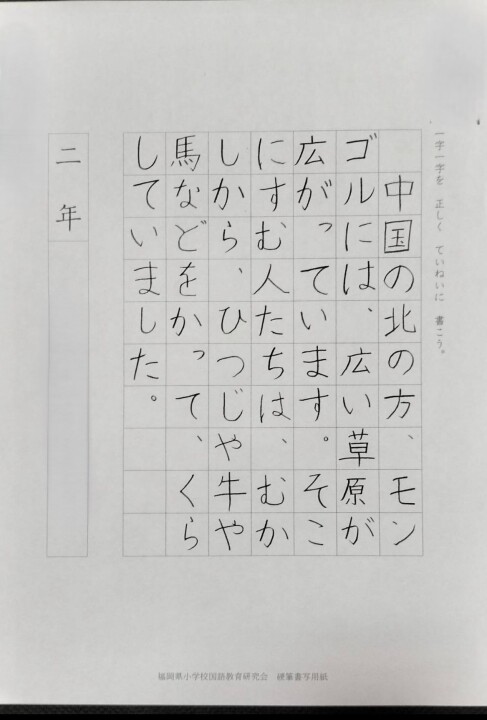 一字一字を　正しく　ていねいに　書こう。
　中国の北の方、モン
ゴルには、広い草原が
広がっています。そこ
にすむ人たちは、むか
しから、ひつじや牛や
馬などをかって、くら
していました。
二年
福岡県小学校国語教育研究会　硬筆書写用紙